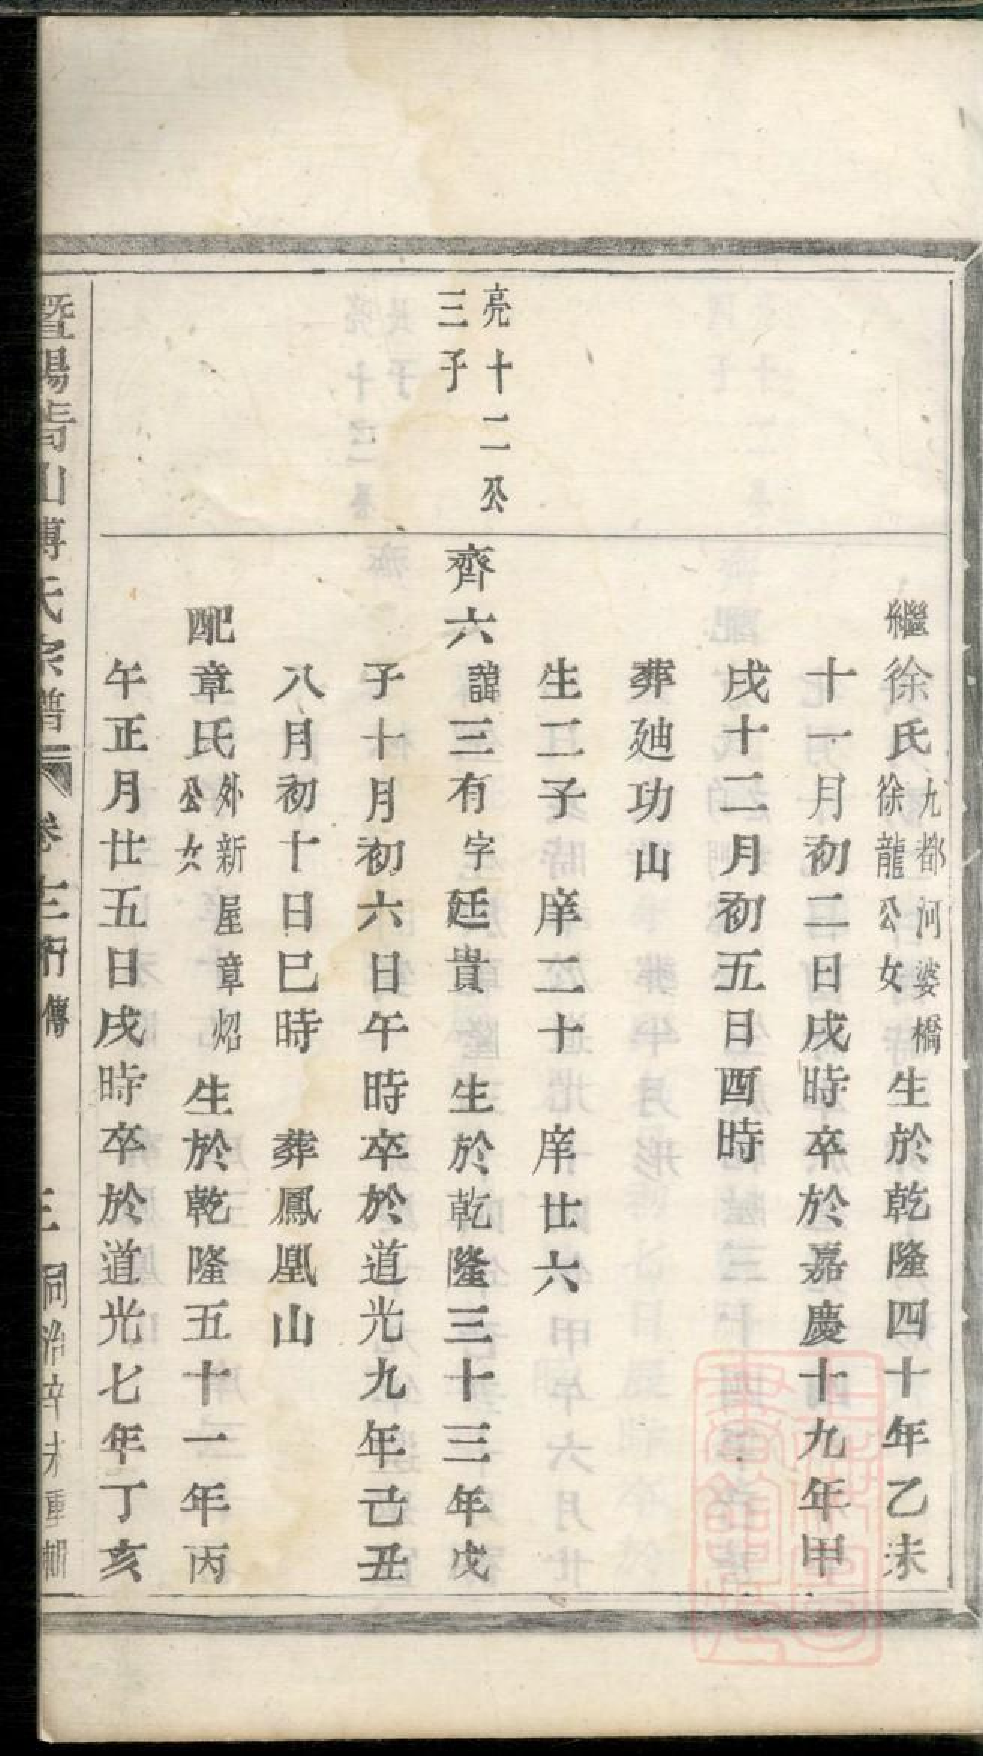 繼徐氏九都河婆橋徐龍公女生於乾隆四十年乙未
十一月初二日戌時卒於嘉慶十九年甲
戌十二月初五日酉時
葬廸功山
生二子庠二十庠廿六
亮十二公
三子
齊六諱三有字廷貴生於乾隆三十三年戊
子十月初六日午時卒於道光九年己丑
八月初十日巳時葬鳳凰山
配章氏外新屋章炤公女生於乾隆五十一年丙
午正月廿五日戌時卒於道光七年丁亥
暨陽 山傅氏宗譜 卷 行傳 三 同治辛未重